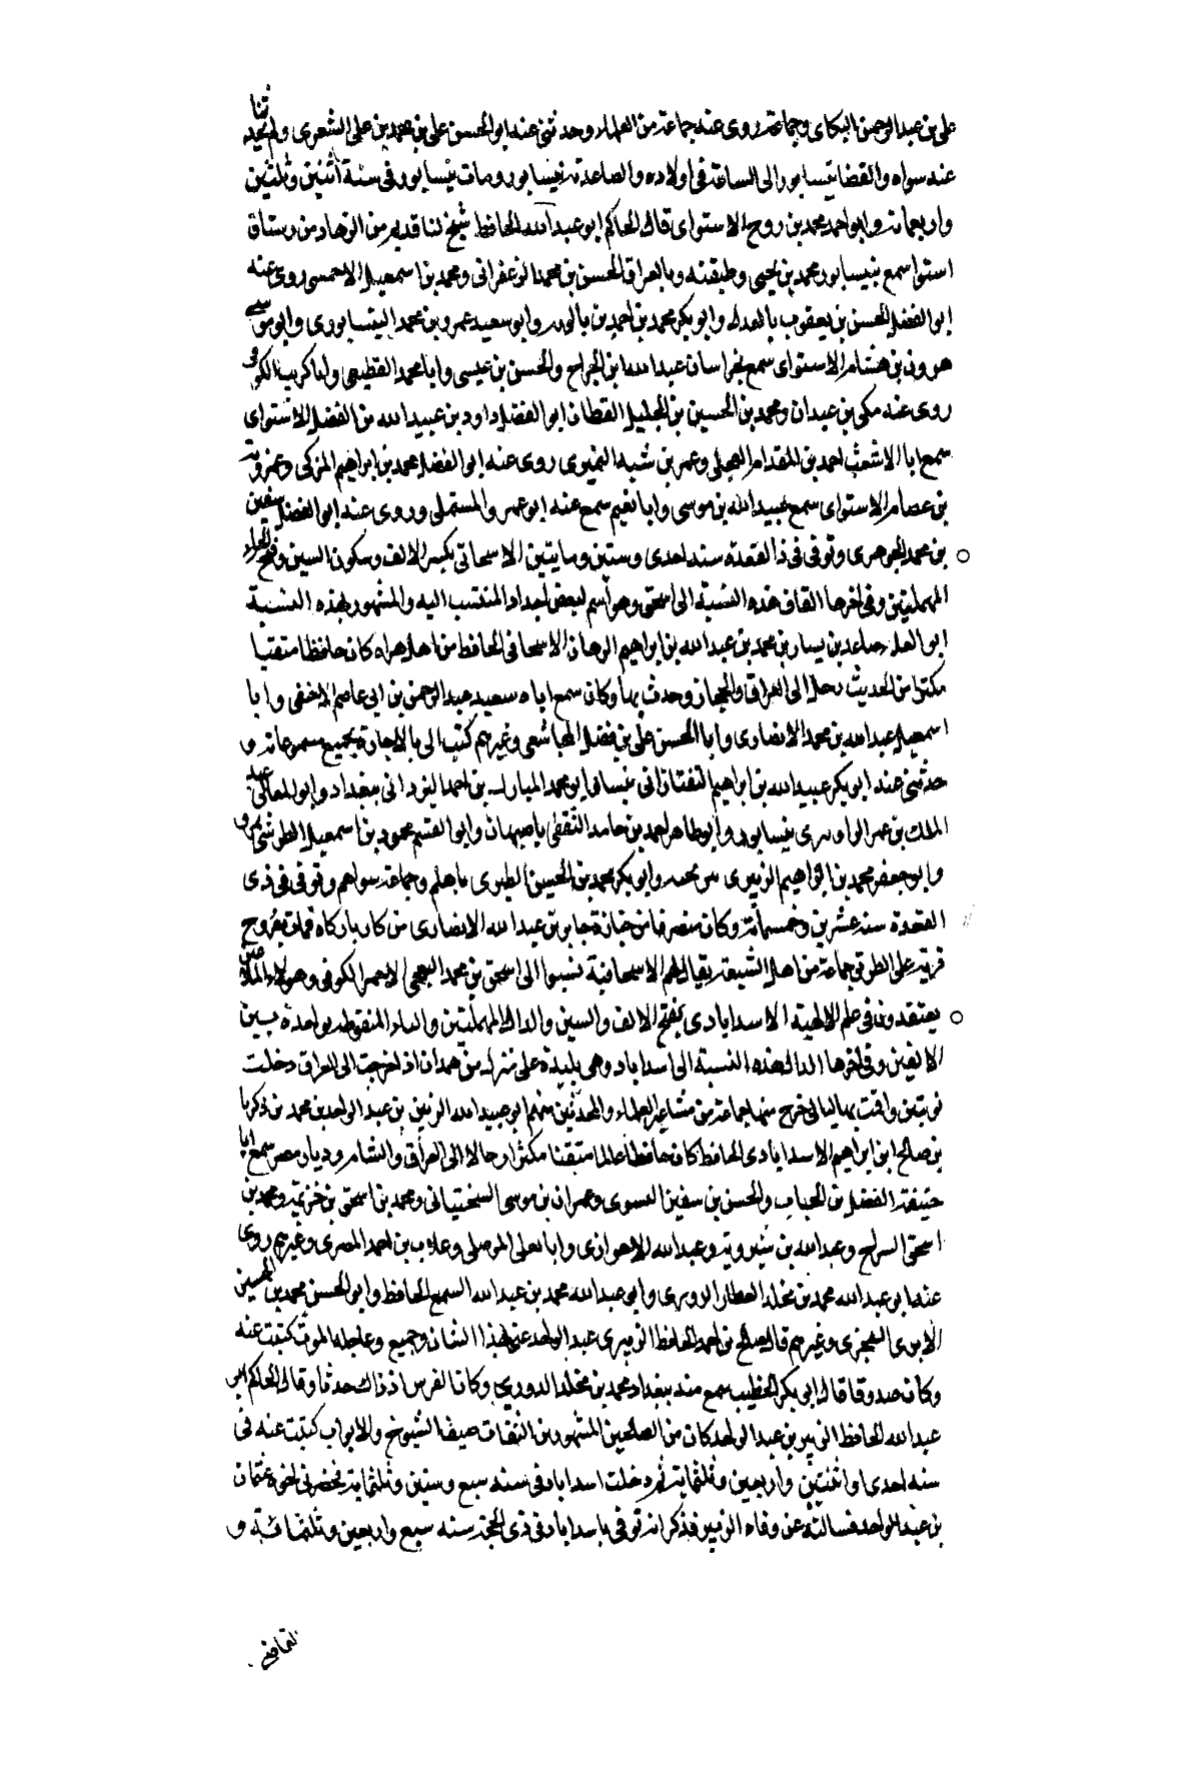 على بن عبد الرحمن البكاى وجماعة روى عنه جماعة من العلماء وحدثنى عنه ابو الحسن على بن محمد بن على الشعرى ولم يحدثنا
عنه سواه والقضا بنيسابور الى الساعة فى اولاده والصاعدية بنيسابور ومات بنيسابور فى سنة اثنين وثلثين
واربعماية وابو احمد محمد بن روح الاستواى قال الحاكم ابو عبد الله الحافظ شيخ لنا قديم من الزهاد من رستاق
استوا سمع بنيسابور محمد بن يحيى وطبقته وبالعراق الحسن بن محمد الزعفرانى ومحمد بن اسمعيل الاحمسى روى عنه
ابو الفضل الحسن بن يعقوب بالعدل وابو بكر محمد بن احمد بن بالويه وابو سعيد عمرو بن محمد النيسابورى وابو موسى
هرون بن هشام الاستواى سمع بخراسان عبد الله ابن الجراح والحسن بن عيسى وابا محمد القطيعى وابا كريب الكوفى
روى عنه مكى بن عبدان ومحمد بن الحسين بن الجليل القطان ابو الفضل داود بن عبيد الله من الفضل الاستواى
سمع ابا الاشعث احمد بن المقدام العجلى وعمر بن شبه النميرى روى عنه ابو الفضل محمد بن ابراهيم المزكى وعمرويه
بن عصام الاستواى سمع عبيد الله بن موسى وابا نعيم سمع عنه ابو عمرو المستملى وروى عنه ابو الفضل سفين
بن محمد الجوهرى وتوفى فى ذ القعدة سنه احدى وستين ومايتين الاسحاقى بكسر الالف وسكون السين وفتح الحاء
المهملتين وفى اخرها القاف هذه النسبة الى اسحق وهو اسم لبعض اجداد المنتسب اليه والمشهور بهذه النسبة
ابو العلا صاعد بن يسار بن محمد بن عبد الله بن ابراهيم الاسحاقى الحافظ من اهل هراه كان حافظا متقنيا
مكثرا من الحديث رحل الى العراق والحجاز وحدث بها وكان سمع اباه سعيد عبد الرحمن بن ابى عاصم الاحنفى وابا
اسمعيل عبد الله بن محمد الانصارى وابا الحسن على بن فضل الهاشمى وغيرهم كتب الى بالاجازة بجميع مسموعاته و
حدثنى عنه ابو بكر عبيد الله بن ابراهيم التفتازانى بنسا وابو محمد المبارك بن احمد اليزدانى ببغداد وابو المعالى عبد
الملك بن عمر بنيسابور وابو طاهر احمد بن حامد الثقفى باصبهان وابو القسم محمود بن اسمعيل
وابو جعفر محمد بن ابراهيم الزبيرى وابو بكر محمد بن الحسين الطبرى وجماعة سواهم وتوفى فى ذى
القعدة سنه عشرين وخمسماية وكان منصرفا من جنازة جابر بن عبد الله الانصارى من كار باركاه فمات بغروج
قرية على الطرق جماعة من اهل الشيعة يقال لهم الاسحاقية نسبوا الى اسحق بن محمد النخعى الاحمر الكوفى وهولاء الملاعين
يعتقدون فى علم الالهية الاسدابادى بفتح الالف والسين والدال المهملتين والباء المنقوطه بواحدة بين
الالفين وفى اخرها الدال هذه النسبة الى اسداباد وهى بليدة على منزل من همدان اذا خرجت الى العراق دخلت
نوبتين واقت بها ليالى خرج منها جماعة من مشاهير العلماء والمحدثين منهم ابو عبيد الله الزبير بن عبد الواحد بن محمد بن زكريا
بن صالح ابن ابراهيم الاسدابادى الحافظ كان حافظا عالما متقنا مكثرا رحالا الى العراق والشام وديار مصر سمع ابا
حنيفة الفضل بن الحباب والحسن بن سفين النسوى وعمران بن موسى السختيانى ومحمد بن اسحق بن خزيمة ومحمد بن
اسحق السراج وعبد الله بن شيرويه وعبد الله الاهوازى وابا يعلى الموصلى وعلان بن احمد المصرى وغيرهم روى
عنه ابو عبد الله محمد بن مخلد العطار الدورى وابى عبد الله محمد بن عبد الله السمع الحافظ وابو الحسن محمد بن الحسين
الابرى السجزى وغيرهم قال صالح بن احمد الحافظ الزبيرى عبد الواحد عنى لهذا الشان وجميع وعاجله الموت كتبت عنه
وكان صدوقا قال ابى بكر الخطيب سمع منه ببغداد محمد بن مخلد الدورى وكان الفرس اذ ذاك حدثا وقال الحاكم ابى
عبد الله الحافظ الزبير بن عبد الواحد كان من الصالحين المشهورين الثقات صيف الشيوخ والابواب كتبت عنه فى
سنه احدى او اثنتين واربعين وثلثماية ثم دخلت اسداباد فى سنه سبع وستين وثلثماية فحضرنى اخوه عثمان
بن عبد الواحد فسالته عن وفاه الزبير فذكر انه توفى باسداباد فى ذى الحجة سنه سبع واربعين وثلثمائة و